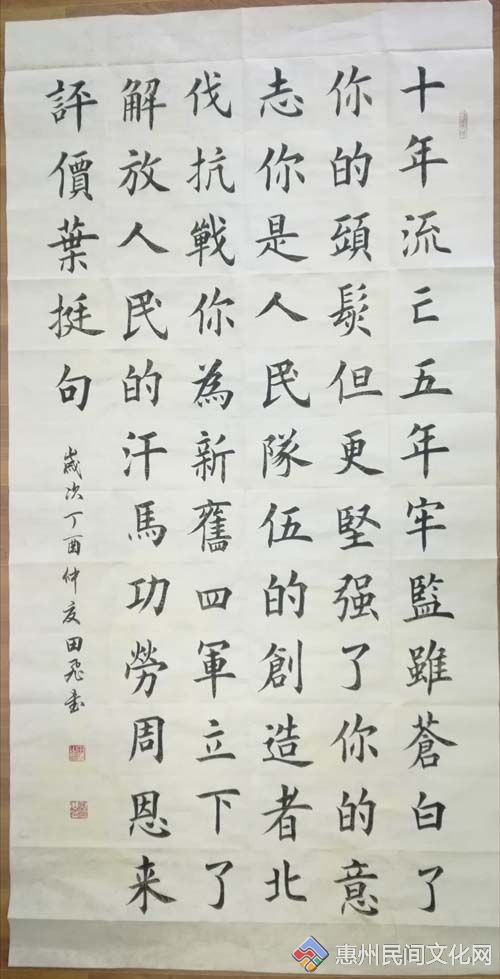 十年流亡五年牢監雖蒼白了
你的頭髮但更堅强了你的意
志你是人民隊伍的創造者北
伐抗戰你為新舊四軍立下了
解放人民的汗馬功勞周恩来
評價葉挺句
歲次丁酉仲夏田飛書
惠州民间文化网